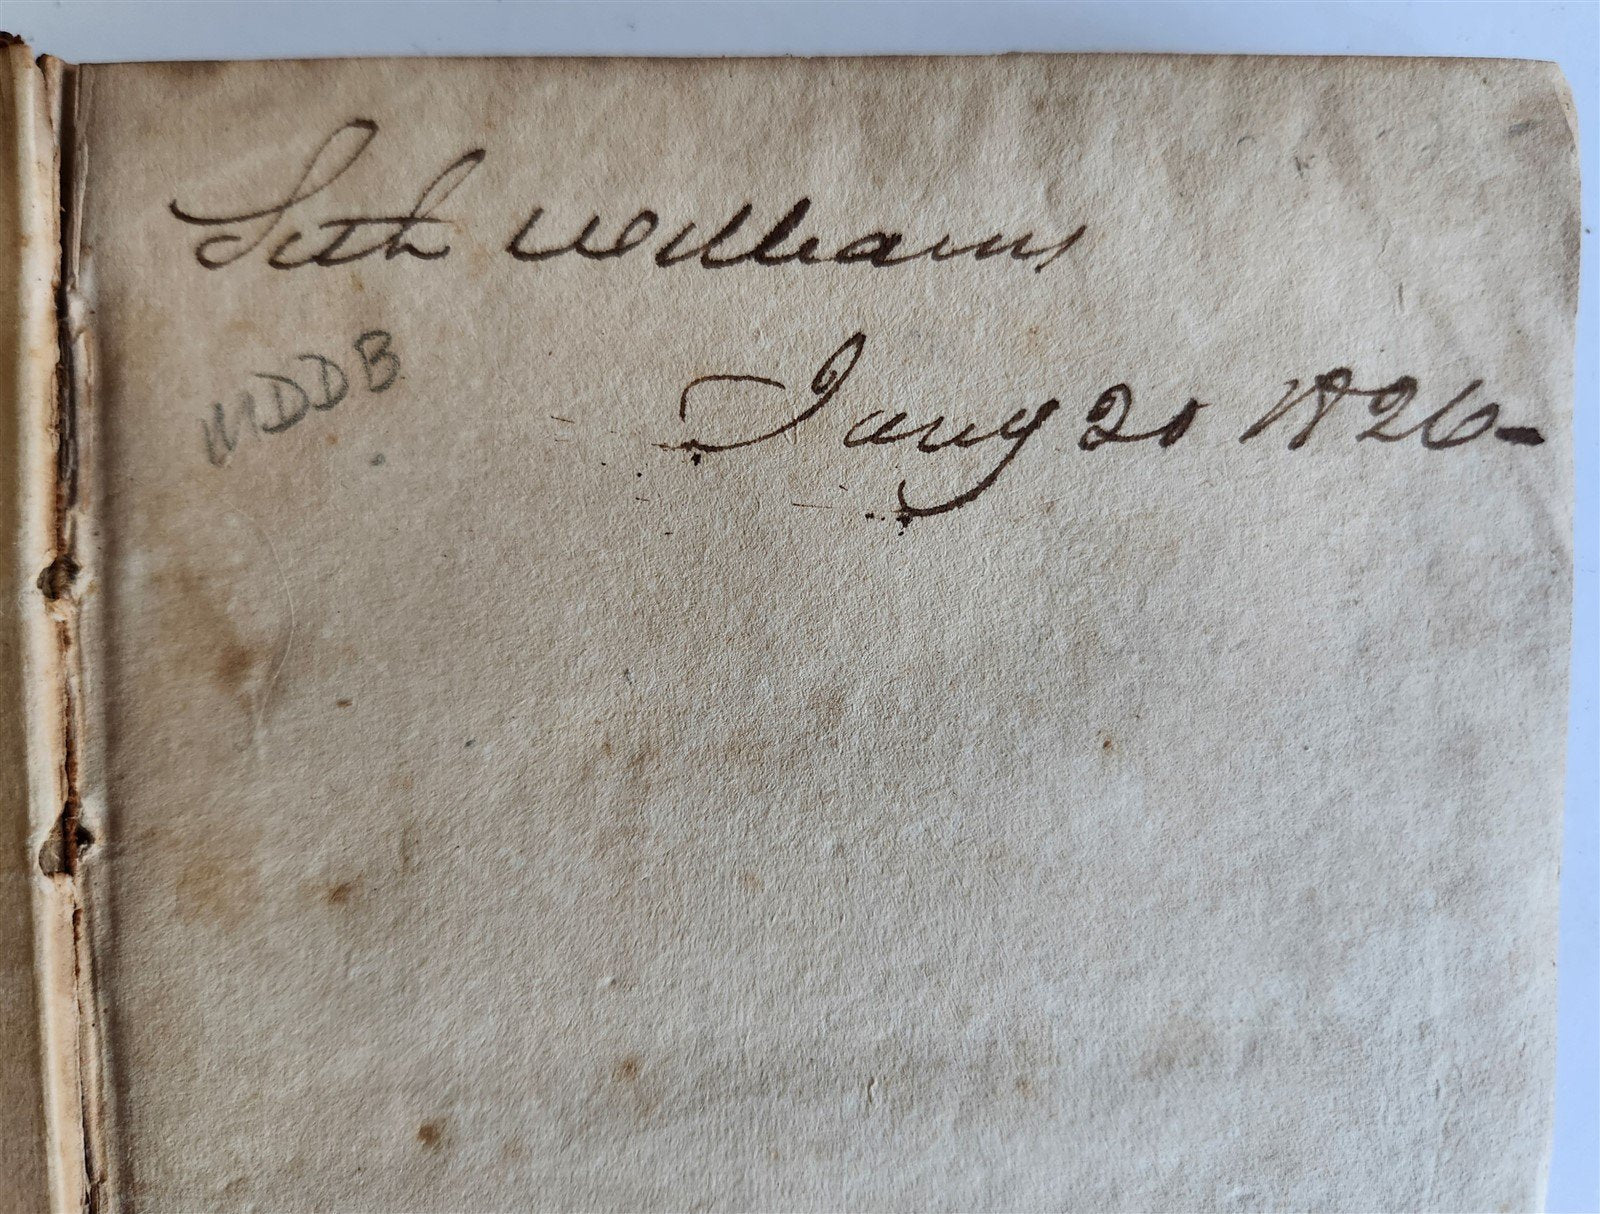 Seth Williams
Jany 20 1826-